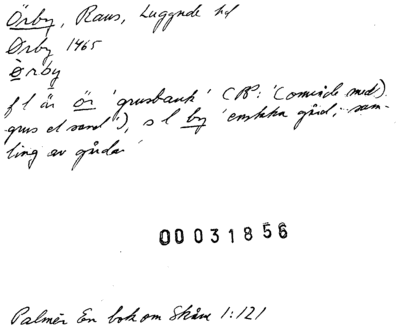 Örby, Raus, Luggude hd
Ørby 1465
Ørby
f l är ör 'grusbank' (BP: '(område med)
grus el sand'), s l by 'enskild gård; sam-
ling av gårdar'
00031856
Palmér En bok om Skåne 1:121